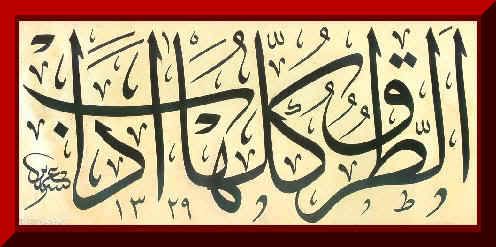 الطرق كلها آداب
١٣٢٩